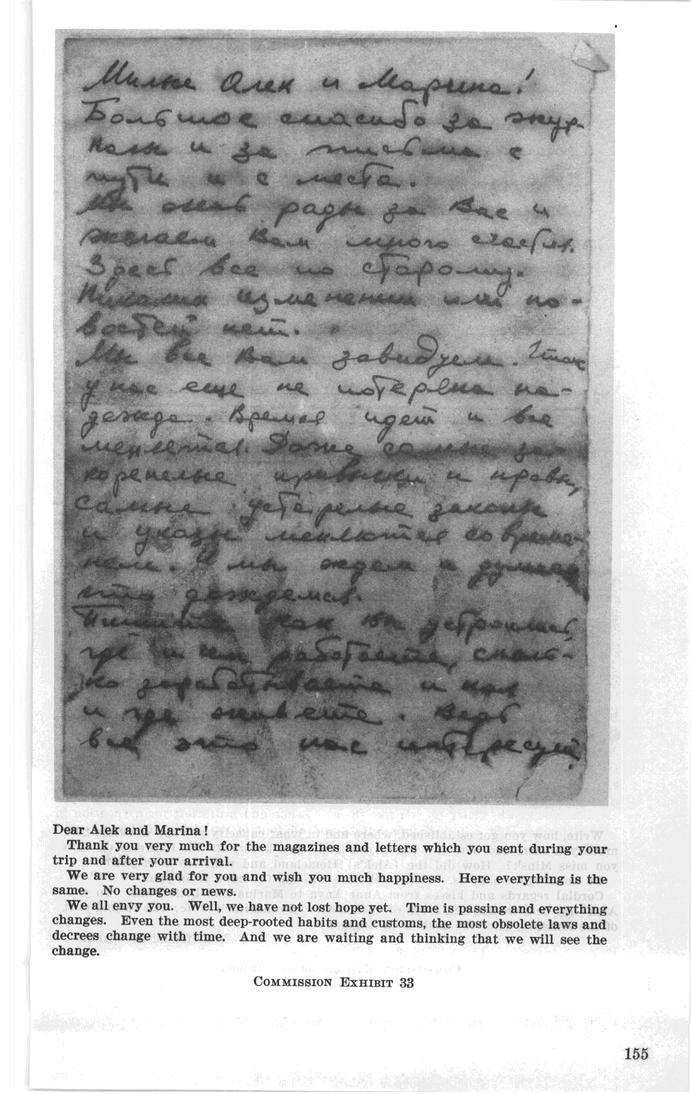 Милые Алек и Марина!
Большое спасибо за жур-
налы и за письма с
пути и с места.
Мы очень рады за вас и
желаем вам много счастья.
Здесь все по старому.
Никаких изменений или но-
востей нет.
Мы все вам завидуем.
у нас еще не потеряна на-
дежда. Время идет и все
меняется. Даже самые за-
коренелые привычки и нравы,
самые устарелые законы
и указы меняются со време-
нем. И мы ждем и думаем
что дождемся.
Пишите как вы устроились,
где и кем работаете, сколь-
ко зарабатываете и как
и где живете. Ведь
все это нас интересует
Dear Alek and Marina!
Thank you very much for the magazines and letters which you sent during your
trip and after your arrival.
We are very glad for you and wish you much happiness. Here everything is the
same. No changes or news.
We all envy you. Well, we have not lost hope yet. Time is passing and everything
changes. Even the most deep-rooted habits and customs, the most obsolete laws and
decrees change with time. And we are waiting and thinking that we will see the
change.
COMMISSION EXHIBIT 33
155